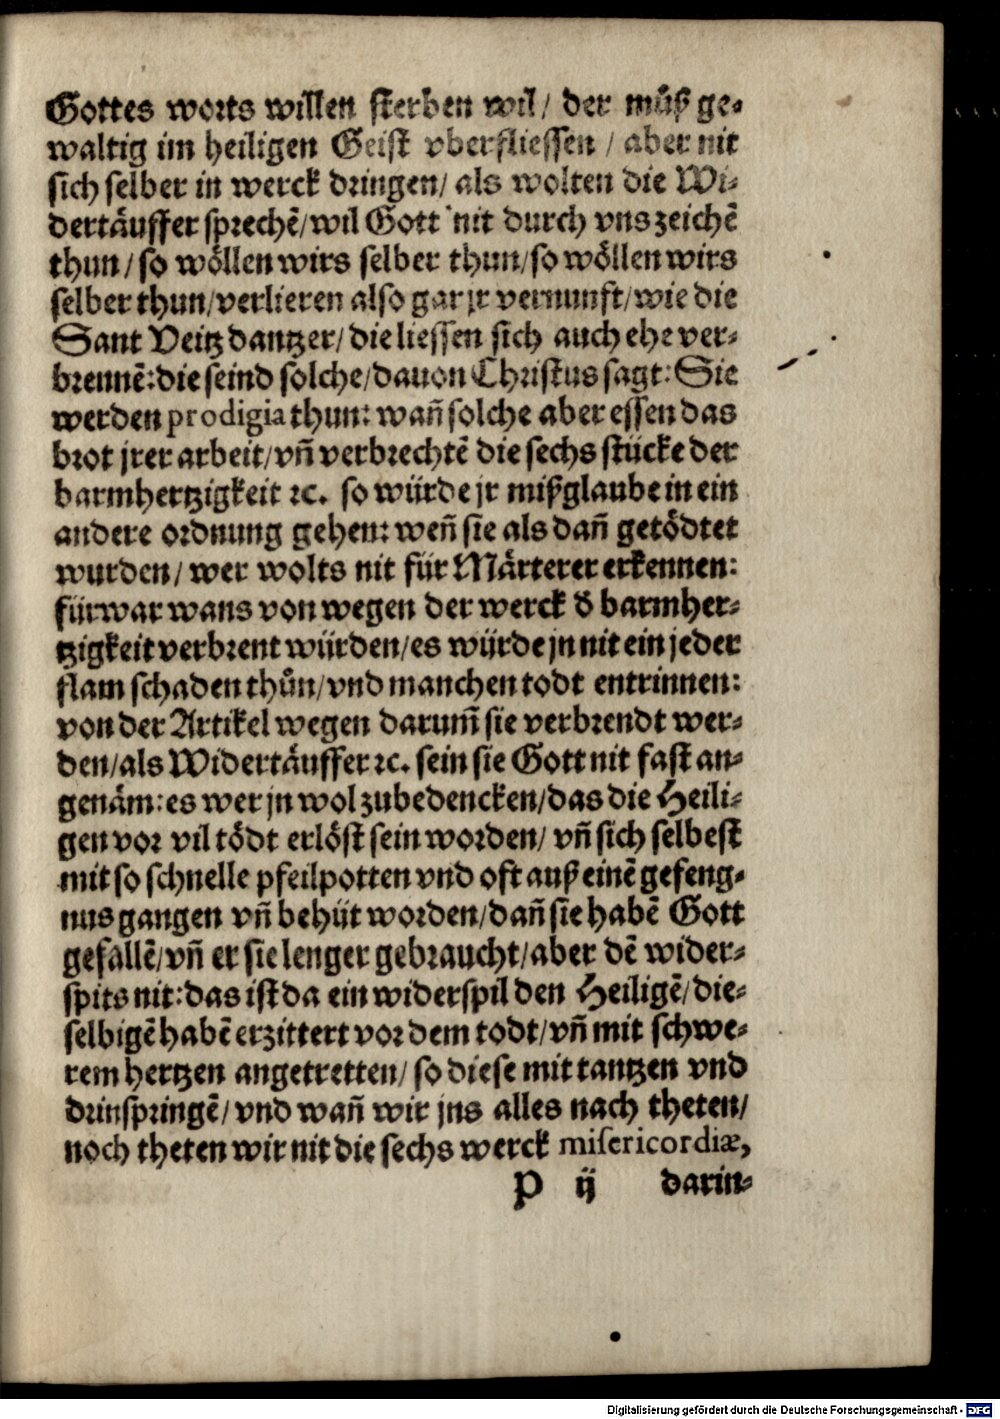 Gottes worts willen sterben wil/ der můß ge-
waltig im heiligen Geist vberfliessen / aber nit
sich selber in werck dringen/ als wolten die Wi-
dertäuffer sprechē/ wil Gott nit durch vns zeichē
thun/ so wöllen wirs selber thun/ so wöllen wirs
selber thun/ verlieren also gar jr vernunft/ wie die
Sant Veitz dantzer/ die liessen sich auch ehe ver-
brennē: die seind solche/ dauon Christus sagt: Sie
werden prodigia thun: wañ solche aber essen das
brot jrer arbeit/ vñ verbrechtē die sechs stücke der
barmhertzigkeit ꝛc. so würde jr mißglaube in ein
andere ordnung gehen: weñ sie als dañ getödtet
wurden/ wer wolts nit für Märterer erkennen:
fürwar wans von wegen der werck d̕ barmher-
tzigkeit verbrent würden/ es würde jn nit ein jeder
flam schaden thůn/ vnd manchen todt entrinnen:
von der Artikel wegen darum̃ sie verbrendt wer-
den/ als Widertäuffer ꝛc. sein sie Gott nit fast an-
genäm: es wer jn wol zubedencken/ das die Heili-
gen vor vil tödt erlöst sein worden/ vñ sich selbest
mit so schnelle pfeilpotten vnd oft auß einē gefeng-
nus gangen vñ behüt worden/ dañ sie habē Gott
gefallē/ vñ er sie lenger gebraucht/ aber dē wider-
spits nit: das ist da ein widerspil den Heiligē/ die-
selbigē habē erzittert vor dem todt/ vñ mit schwe-
rem hertzen angetretten/ so diese mit tantzen vnd
drinspringē/ vnd wañ wir jns alles nach theten/
noch theten wir nit die sechs werck misericordiæ,
P ij darin-
Digitalisierung gefördert durch die Deutsche Forschungsgemeinschaft - DFG